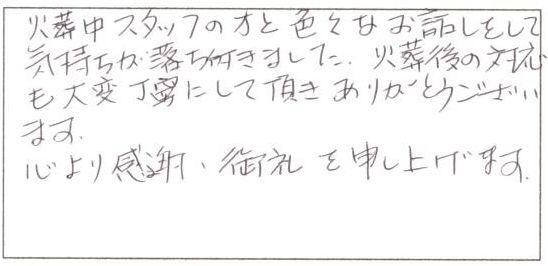 火葬中スタッフの方と色々なお話しをして
気持ちが落ち付きました。火葬後の対応
も大変丁寧にして頂きありがとうござい
ます。
心より感謝、御礼を申し上げます。